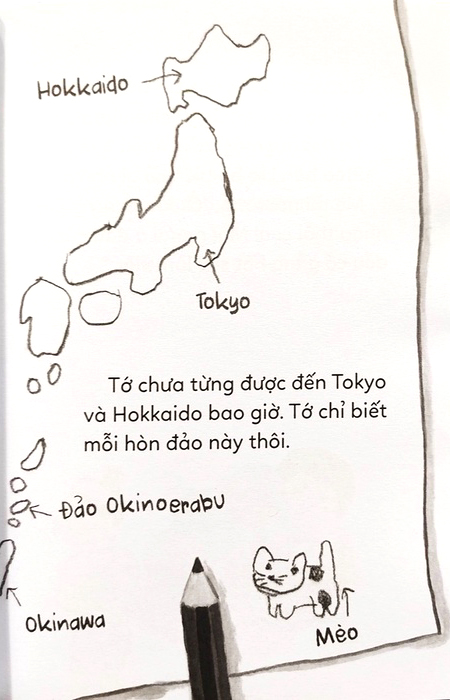 Hokkaido
Tokyo
Tớ chưa từng được đến Tokyo
và Hokkaido bao giờ. Tớ chỉ biết
mỗi hòn đảo này thôi.
Đảo Okinoerabu
Okinawa
Mèo